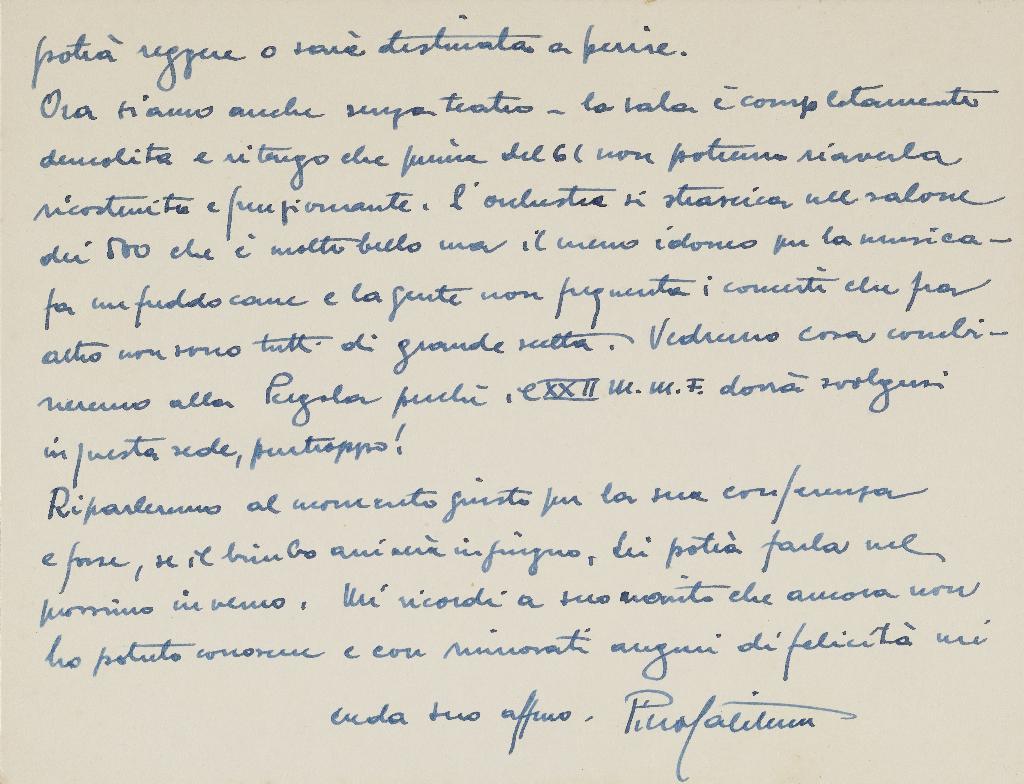 potrà reggere o sarà destinata a perire.
Ora siamo anche senza teatro – la sala è completamente
demolita e ritengo che prima del 61 non potremo riaverla
ricostruita e funzionante. L'orchestra si trascica nel salone
dei 500 che è molto bello ma il meno idoneo per la musica –
fa un freddo cane e la gente non frequenta i concerti che fra
altro non sono tutti di grande scelta. Vedremo cosa combi–
neremo alla Pergola perché il XXII M.M.F. dovrà svolgersi
in questa sede, purtroppo!
Riparleremo al momento giusto per la sua conferenza
e forse, se il bimbo arriverà in giugno, Lei potrà farla nel
prossimo inverno. Mi ricordi a suo marito che ancora non
ho potuto conoscere e con rinnovati auguri di felicità mi
creda suo affmo.